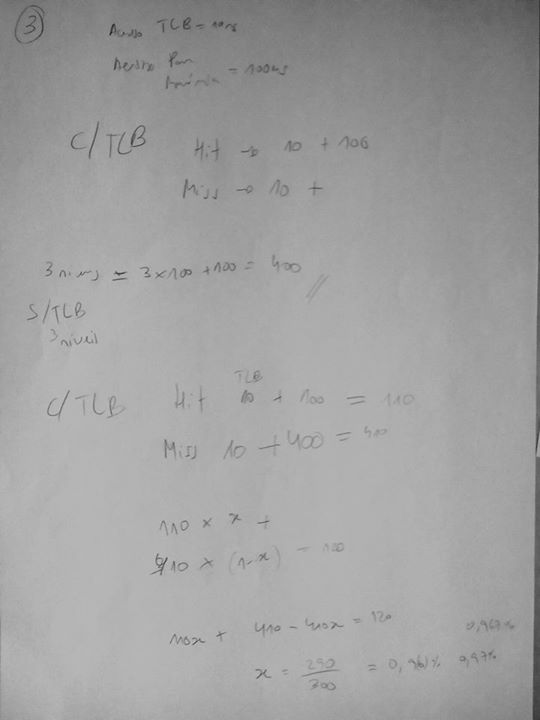 3
Acesso TLB = 10ns
Acesso Pon
Memória = 100ns
C/TLB Hit → 10 + 100
Miss → 10 +
3 niveis = 3x100 + 100 = 400 //
S/TLB
3 niveis
TLB
C/TLB Hit 10 + 100 = 110
Miss 10 + 400 = 410
110 x x +
410 x (1-x) = 120
110x + 410 - 410x = 120 0,967%
x = 290/300 = 0,961% 0,97%